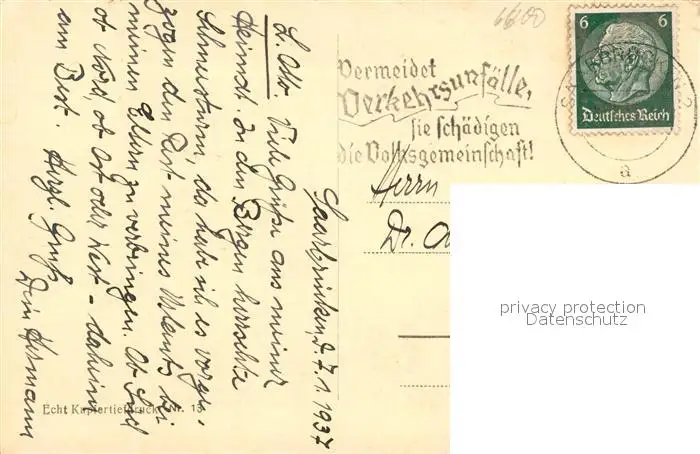 Saarbrücken, d. 7.1.1937
L. Otto. Viele Grüße aus meiner
Heimat. In den Bergen herrschte
Schneesturm, da habe ich es vorge-
zogen den Rest meines Urlaubs bei
meinen Eltern zu verbringen. Ob Süd
ob Nord, ob Ost oder West – daheim
am Best. Herzl. Gruß
Dein Hermann
Echt Kupfertiefdruck Nr. 15
6600
Vermeidet
Verkehrsunfälle,
sie schädigen
die Volksgemeinschaft!
SAARBRÜCKEN 2
a
6 6
Deutsches Reich
Herrn
Dr.
privacy protection
Datenschutz